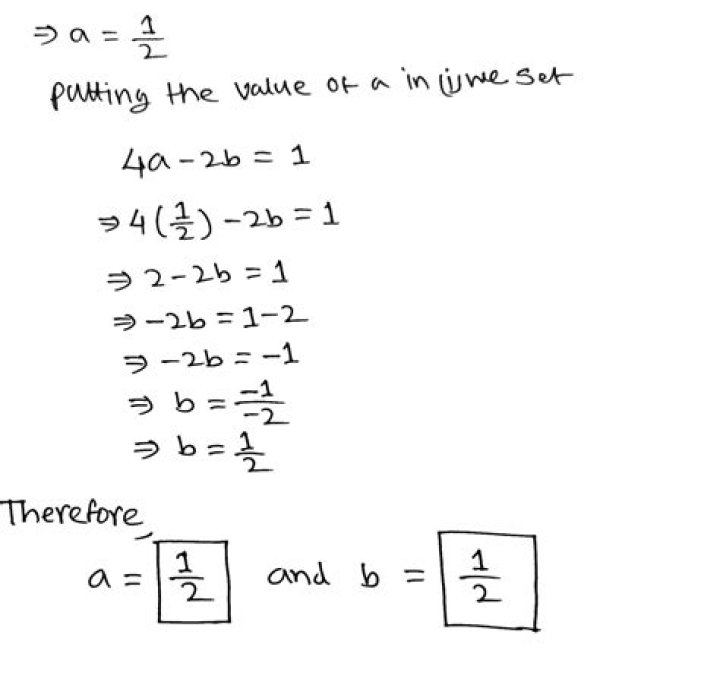 ⇒ a = 1/2
putting the value of a in (i) we get
4a - 2b = 1
⇒ 4(1/2) - 2b = 1
⇒ 2 - 2b = 1
⇒ -2b = 1-2
⇒ -2b = -1
⇒ b = -1/-2
⇒ b = 1/2
Therefore,
a = 1/2 and b = 1/2